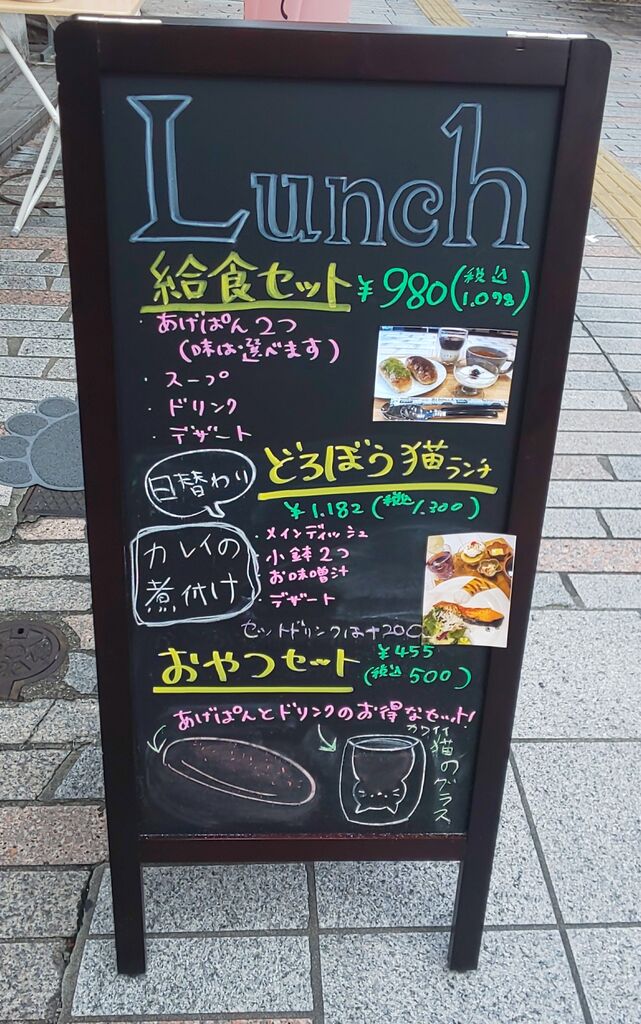 Lunch
給食セット ¥980(税込1.098)
・あげぱん2つ
(味は選べます)
・スープ
・ドリンク
・デザート
どろぼう猫ランチ
日替わり
¥1.182(税込1.300)
カレイの
煮付け
・メインディッシュ
・小鉢2つ
・お味噌汁
・デザート
セットドリンクは+200
おやつセット
¥455
(税込500)
あげぱんとドリンクのお得なセット!
カワイイ
猫のグラス